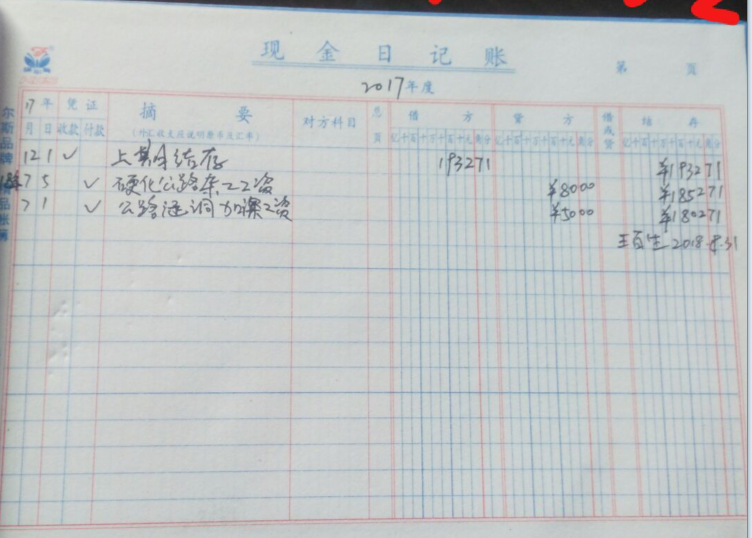 现金日记账
第 页
2017年度
17年 凭证 摘要 对方科目 总页 借方 贷方 借或贷 结存
月 日 收款 付款 (外汇收支应说明原币及汇率) 亿千百十万千百十元角分 亿千百十万千百十元角分 亿千百十万千百十元角分
12 1 ✓ 上期月结存 193271 ¥193271
7 5 ✓ 硬化公路杂工工资 ¥8000 ¥185271
7 1 ✓ 公路涵洞加深工资 ¥5000 ¥180271
2018.8.31